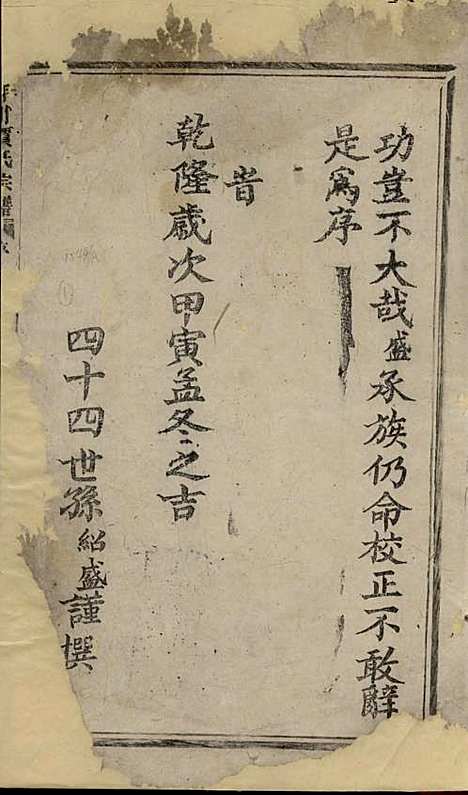 功豈不大哉盛承族仍命校正不敢辭
是為序
旹
乾隆歲次甲寅孟冬之吉
四十四世孫紹盛謹撰